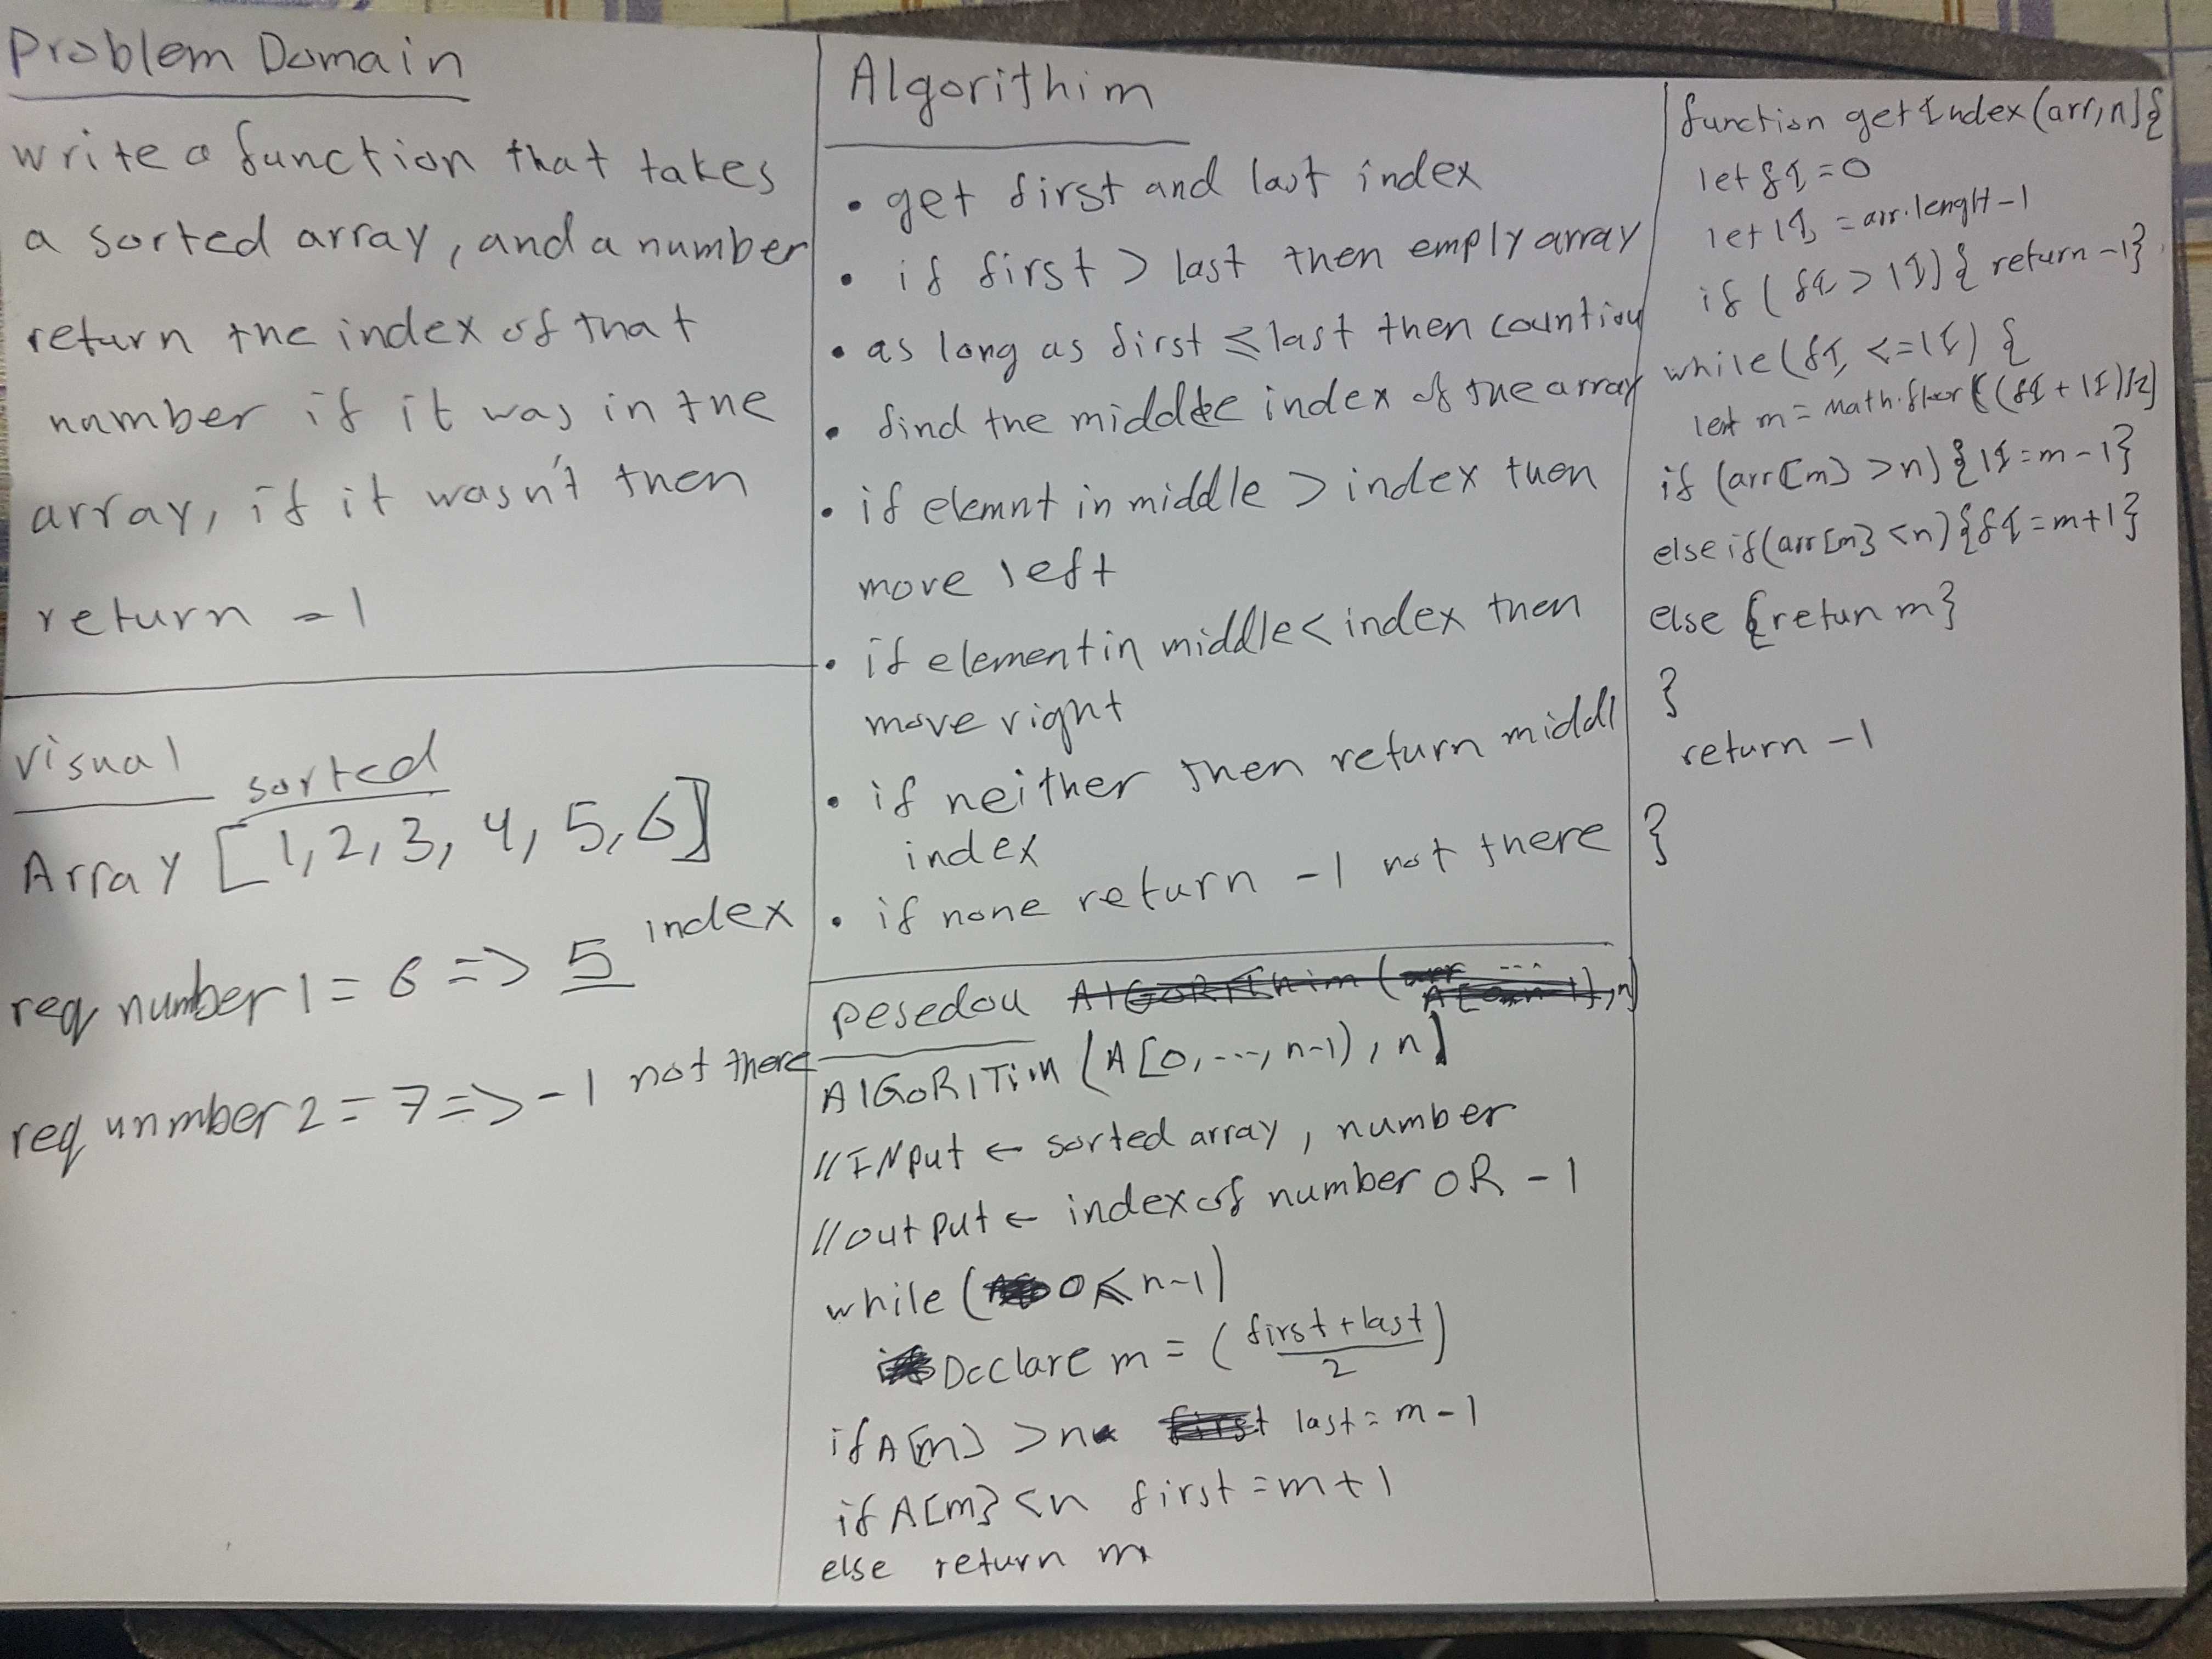 Problem Domain
write a function that takes
a sorted array, and a number
return the index of that
number if it was in the
array, if it wasn't then
return -1
visual
sorted
Array [1,2,3,4,5,6]
req number 1 = 6 => 5 index
req unmber 2 = 7 => -1 not there
Algorithim
• get first and last index
• if first > last then emply array
• as long as first ≤ last then countiou
• find the middle index of the array
• if elemnt in middle > index then
move left
• if element in middle < index then
move right
• if neither then return middl
index
• if none return -1 not there
pesedou
AlGoRITim (A[0,---,n-1),n]
//INput ← sorted array, number
//output ← index of number oR -1
while (0 ≤ n-1)
Declare m = (first + last / 2)
if A[m] > n last = m-1
if A[m] < n first = m+1
else return m
function getIndex(arr,n){
let fI = 0
let lI = arr.lenght-1
if (fI > lI) { return -1}
while (fI <= lI) {
let m = Math.floor((fI + lI)/2)
if (arr[m] > n) {lI = m-1}
else if (arr[m] < n) {fI = m+1}
else {retun m}
}
return -1
}